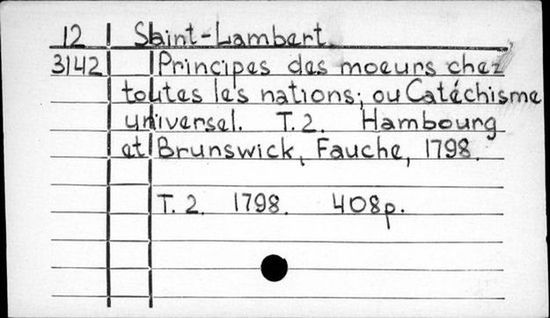 12 Saint-Lambert
3142 Principes des moeurs chez
toutes les nations; ou Catéchisme
universel. T.2. Hambourg
et Brunswick, Fauche, 1798.
T.2. 1798. 408p.